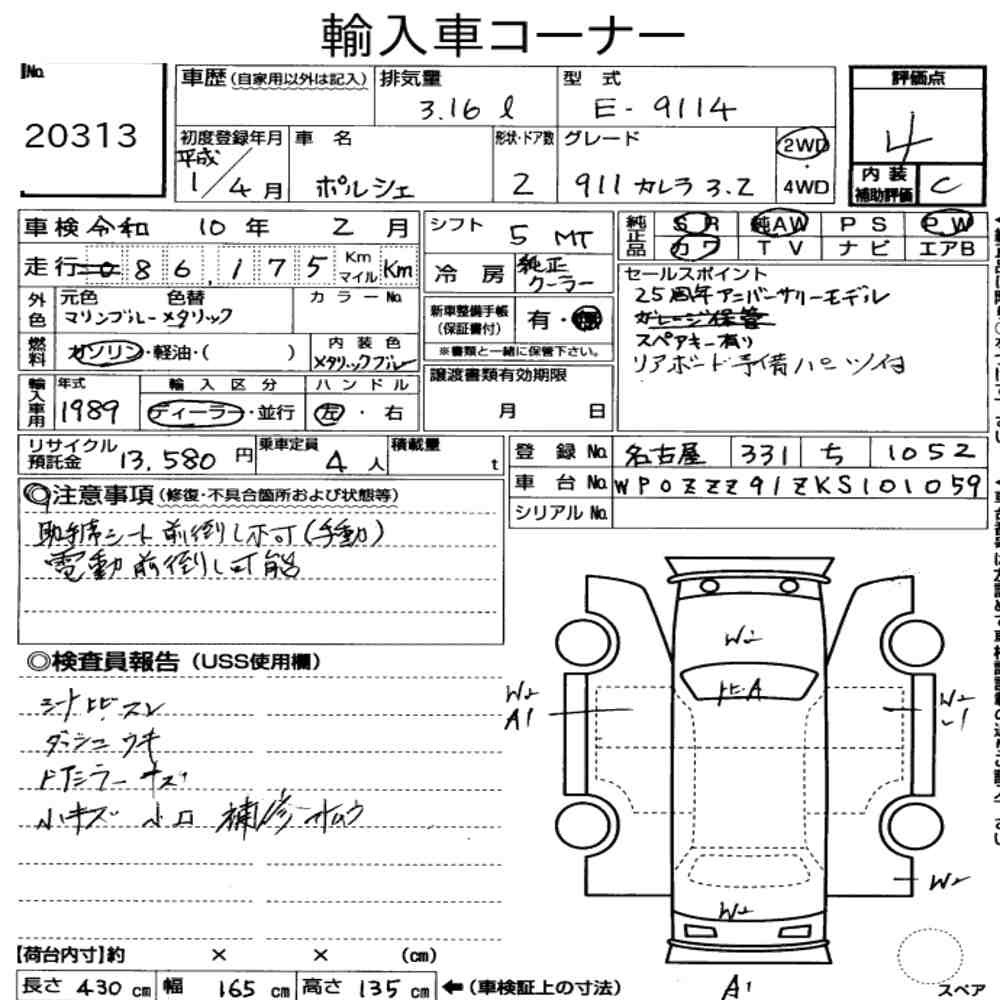 輸入車コーナー
No. 20313
車歴(自家用以外は記入) 排気量 3.16 ℓ 型式 E-9114
評価点 4
初度登録年月 平成 1/4月 車名 ポルシェ 形状・ドア数 2 グレード 911 カレラ 3.2 2WD・4WD
内装補助評価 C
車検 令和 10年 2月 シフト 5 MT
純正品 SR 純AW PS PW
カワ TV ナビ エアB
走行 0 8 6,1 7 5 Km マイル Km
冷房 純正クーラー
外色 元色 色替 カラーNo.
マリンブルーメタリック
新車整備手帳(保証書付) 有・無
※書類と一緒に保管下さい。
燃料 ガソリン・軽油・( ) 内装色 メタリックブルー
セールスポイント
25周年アニバーサリーモデル
ガレージ保管
スペアキー有り
リアボード予備パーツ付
輸入車用 年式 1989 輸入区分 ディーラー・並行 ハンドル 左・右
譲渡書類有効期限
月 日
リサイクル預託金 13,580円 乗車定員 4人 積載量 t
登録No. 名古屋 331 ち 1052
車台No. WP0ZZZ91ZKS101059
シリアルNo.
◎注意事項(修復・不具合箇所および状態等)
助手席シート前倒し不可(手動)
電動前倒し可能
◎検査員報告(USS使用欄)
シートヒビスレ
ダッシュウキ
ドアミラーキズ
小キズ 小凹 補修有
W2
ヒビA
W2
A1
W2
W2
W2
A1
【荷台内寸】約 × × (cm)
長さ 430 cm 幅 165 cm 高さ 135 cm ←(車検証上の寸法)
スペア